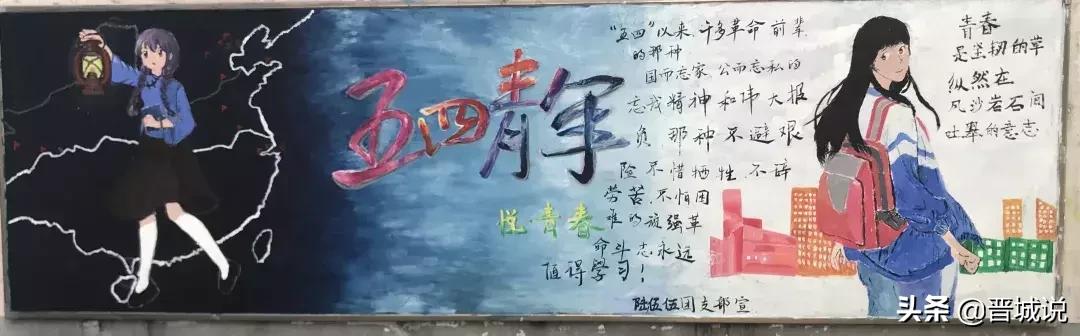 五四青年
悦·青春
"五四"以来,许多革命前辈
的那种
国而忘家,公而忘私的
忘我精神和伟大报
负,那种不避艰
险不惜牺牲,不辞
劳苦,不怕困
难的顽强革
命斗志永远
值得学习!
陆伍伍团支部宣
青春
是坚韧的草
纵然在
风沙岩石间
的意志
头条 @晋城说